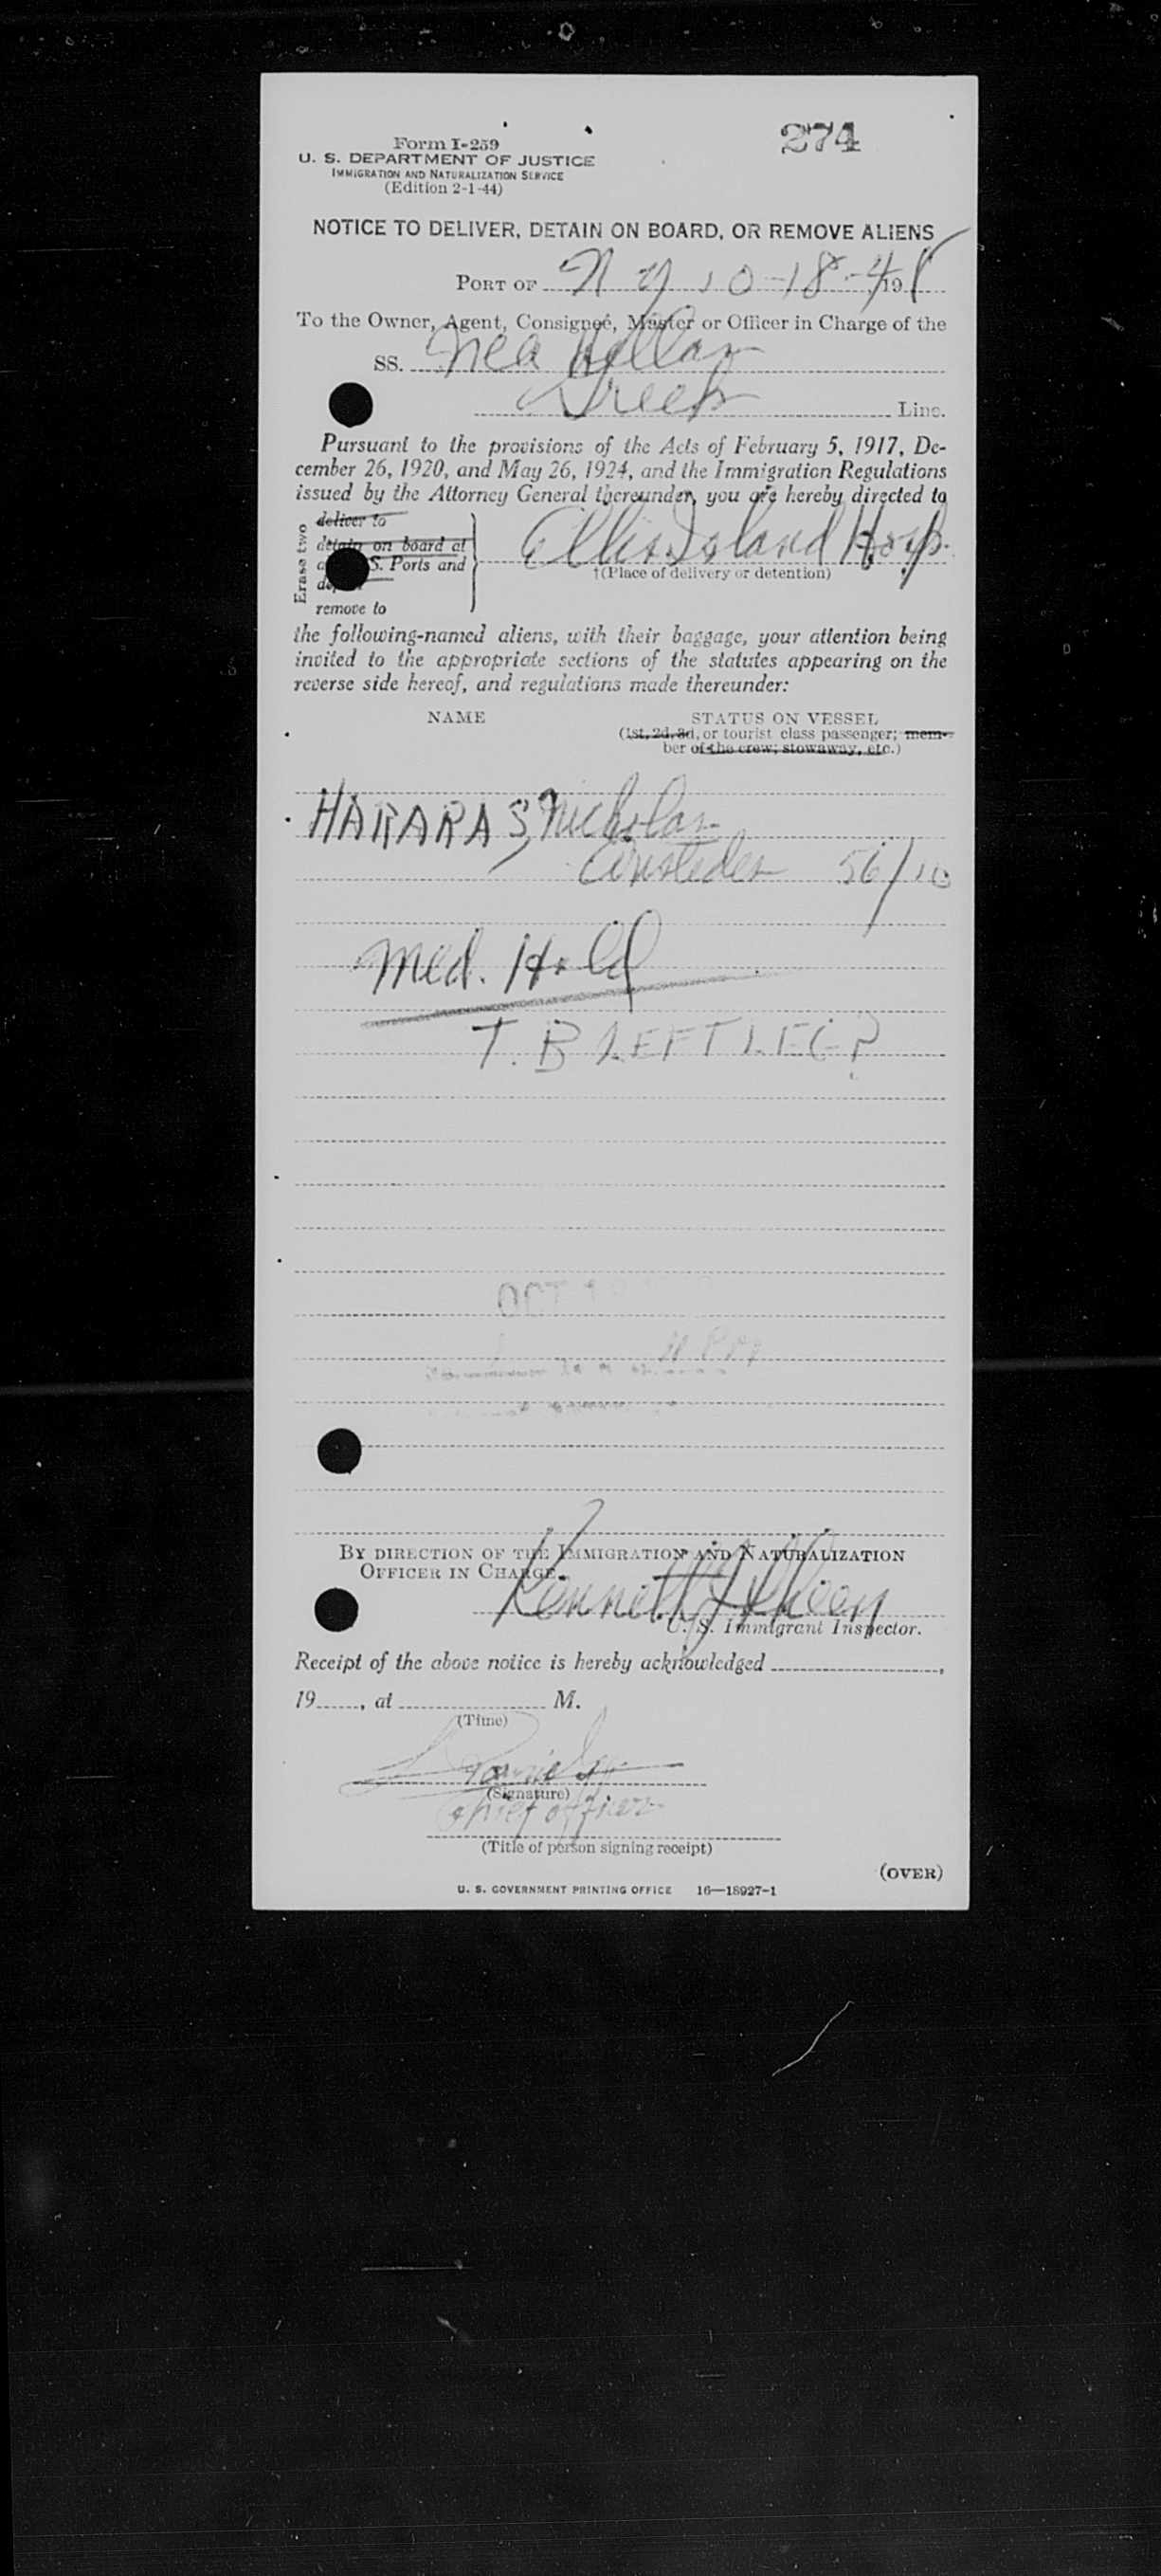 274
Form I-259
U. S. DEPARTMENT OF JUSTICE
IMMIGRATION AND NATURALIZATION SERVICE
(Edition 2-1-44)
NOTICE TO DELIVER, DETAIN ON BOARD, OR REMOVE ALIENS
PORT OF N Y 10-18-48 19
To the Owner, Agent, Consignee, Master or Officer in Charge of the
SS. Nea Hellas
Greek Line.
Pursuant to the provisions of the Acts of February 5, 1917, De-
cember 26, 1920, and May 26, 1924, and the Immigration Regulations
issued by the Attorney General thereunder, you are hereby directed to
Erase two
deliver to
detain on board at
S. Ports and
remove to
Ellis Island Hosp.
†(Place of delivery or detention)
the following-named aliens, with their baggage, your attention being
invited to the appropriate sections of the statutes appearing on the
reverse side hereof, and regulations made thereunder:
NAME STATUS ON VESSEL
(1st, 2d, 3d, or tourist class passenger; mem-
ber of the crew; stowaway, etc.)
HARARAS, Nicholas
Aristedes 56/10
Med. Hold
T. B LEFT LEG?
OCT 1
BY DIRECTION OF THE IMMIGRATION AND NATURALIZATION
OFFICER IN CHARGE.
Kenneth
U. S. Immigrant Inspector.
Receipt of the above notice is hereby acknowledged ,
19 , at M.
(Time)
(Signature)
Chief officer
(Title of person signing receipt)
(OVER)
U. S. GOVERNMENT PRINTING OFFICE 16—18927-1